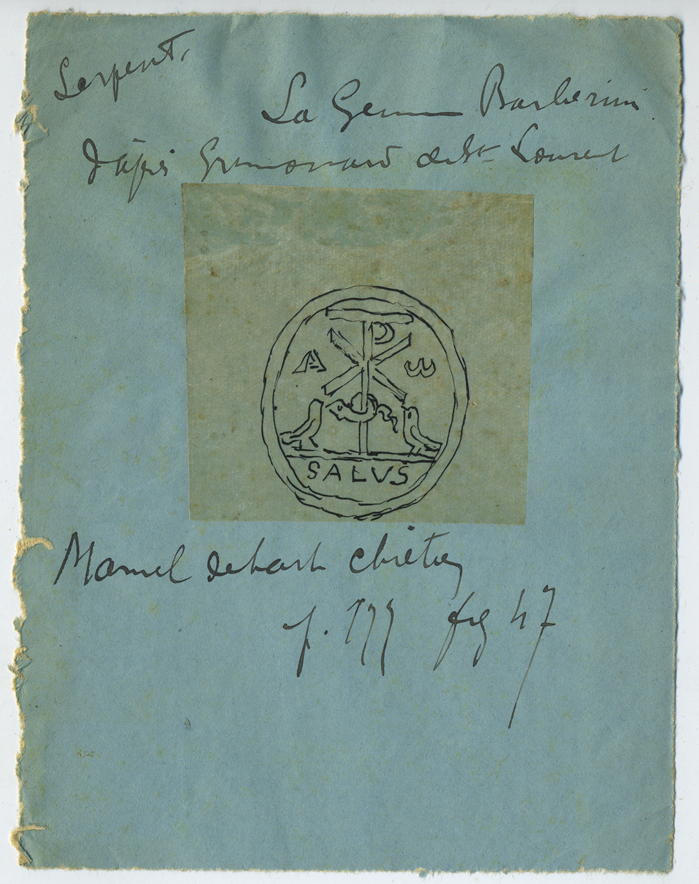 Serpent.
La Gemme Barberini
d'après Grimouard de St Laurent
A ω
SALUS
Manuel de l'art chrétien
p. 177 fig 47